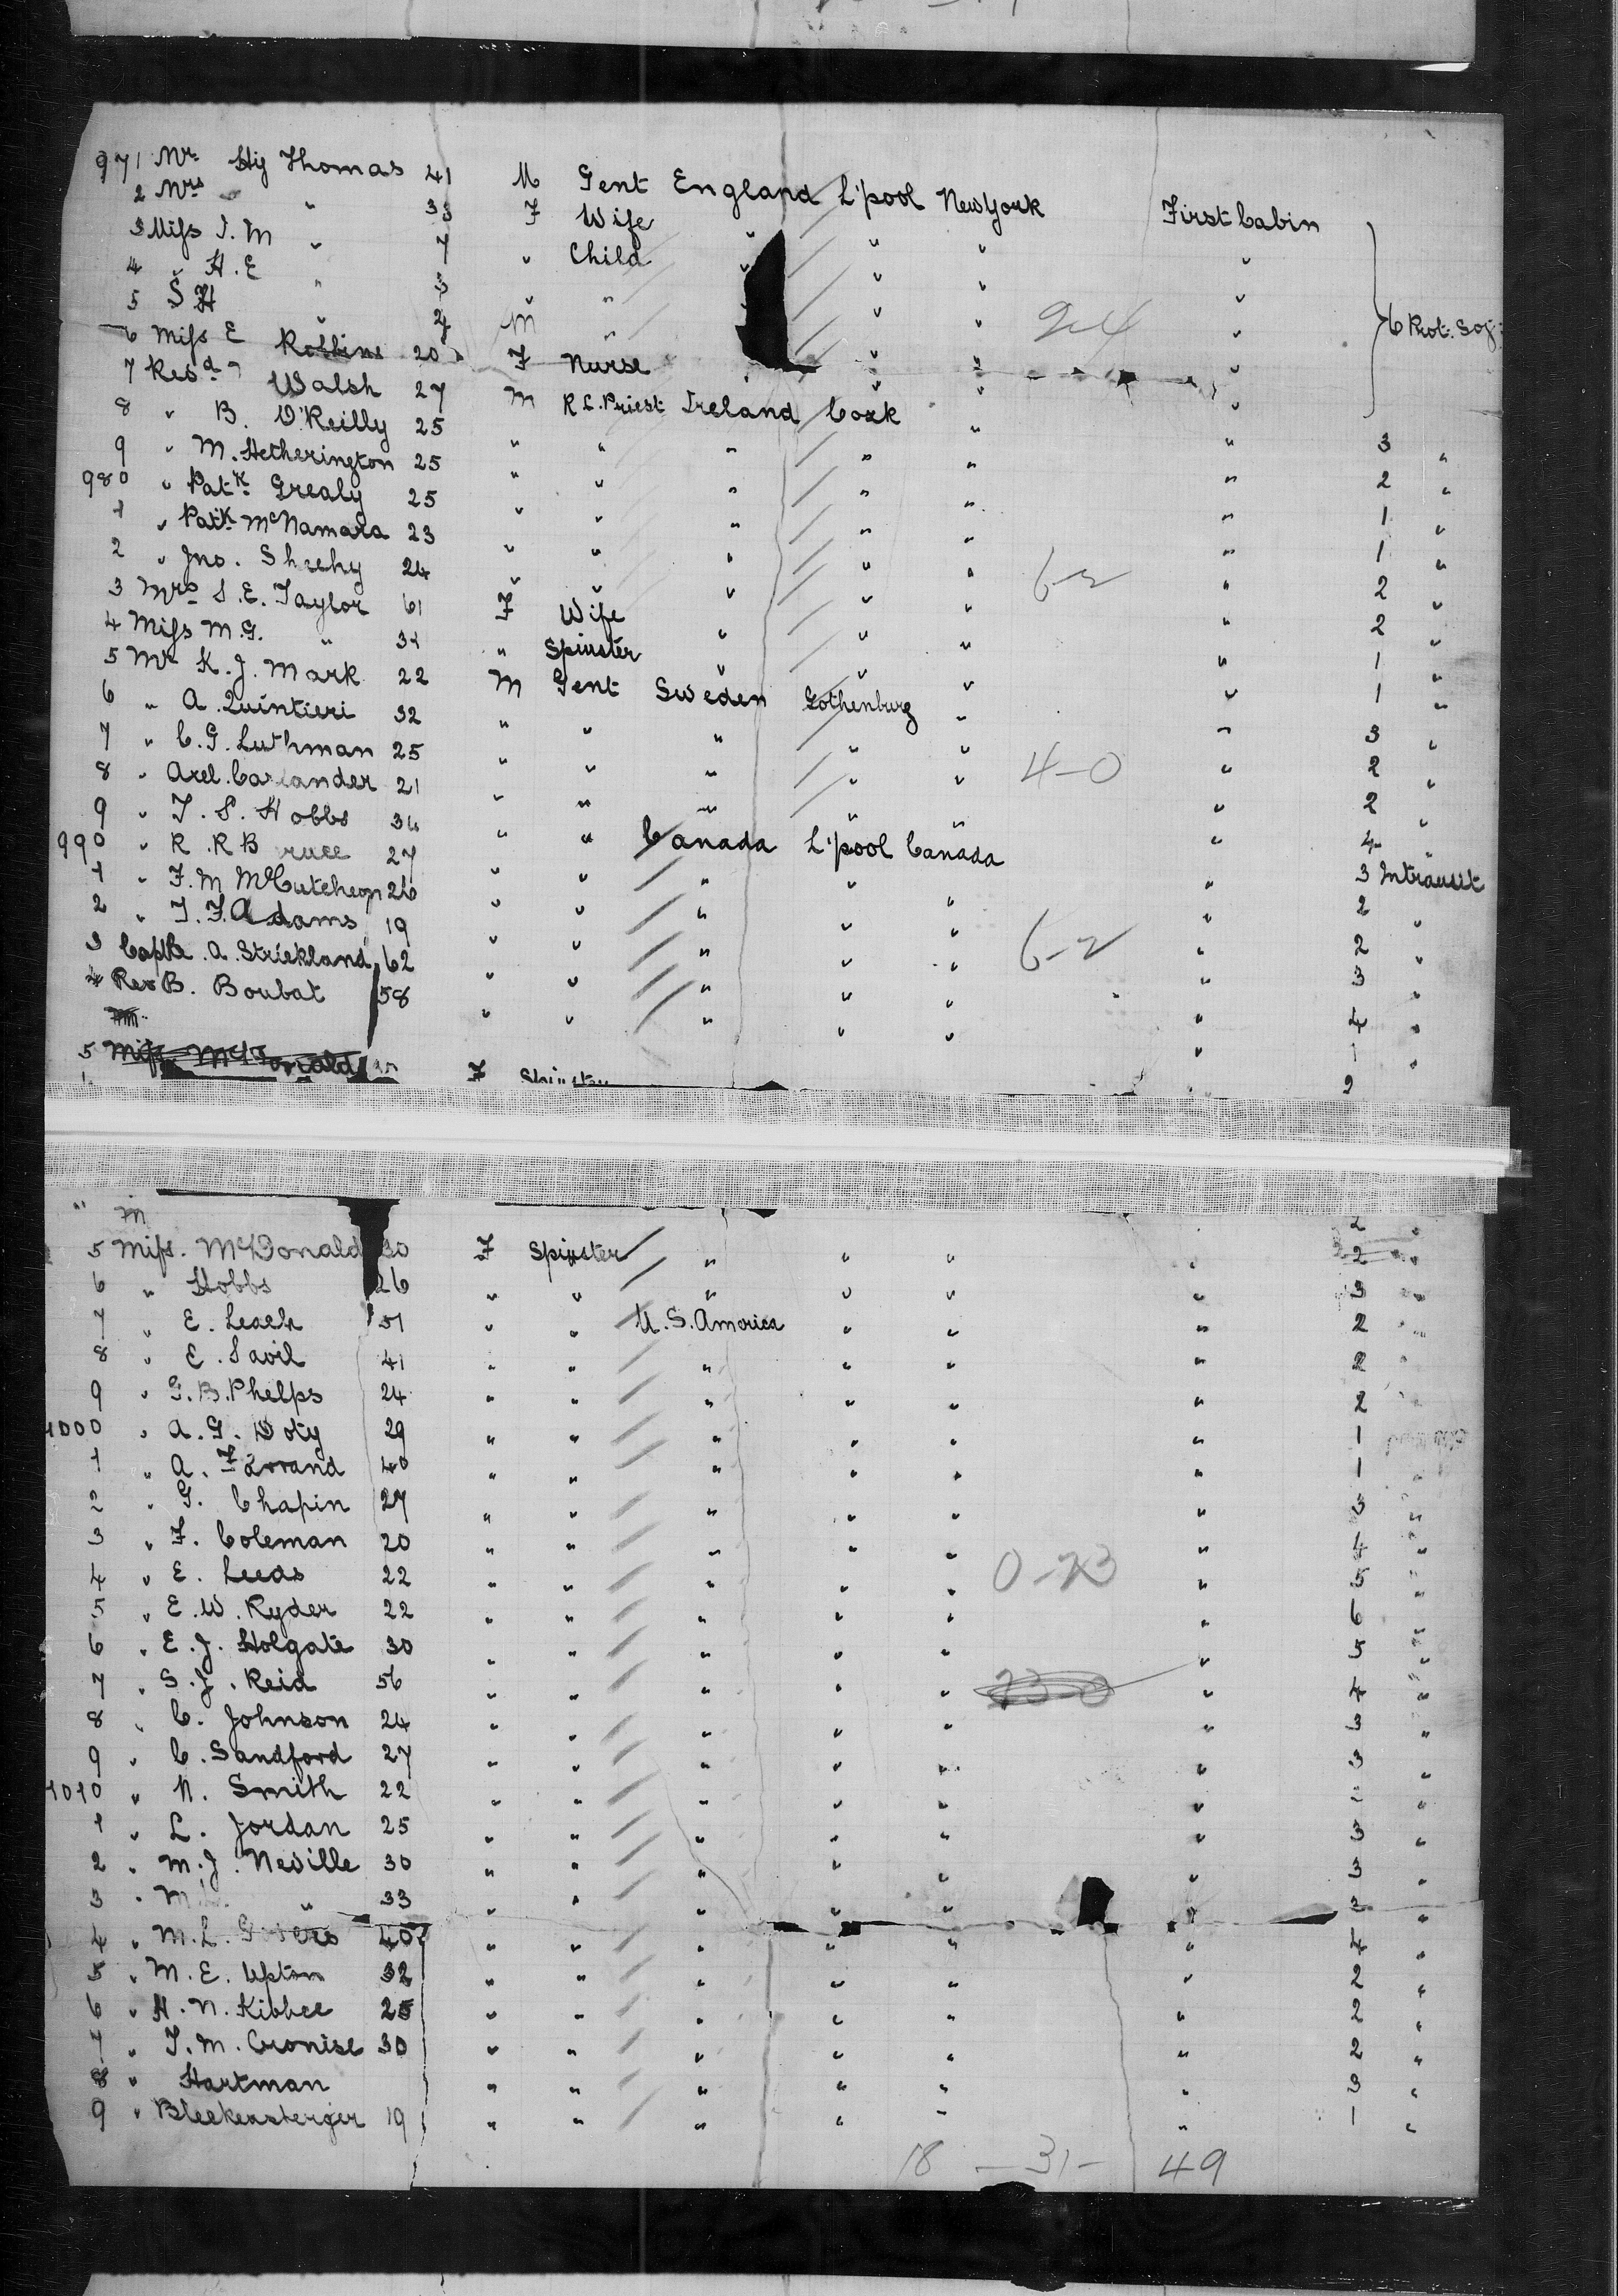 971 Mr. Hy Thomas 41 M Gent England L'pool New York First Cabin
2 Mrs " " 33 F Wife " " " "
3 Miss I. M " 7 " Child " " " "
4 " H. E " 3 " " " " " " 6 Prot. Soj:
5 S H " M " " " " 2-4 "
6 Miss E Robbins 20 F Nurse " " "
7 Revd Walsh 27 M R C. Priest Ireland Cork " "
8 " B. O'Reilly 25 " " " " " " 3 "
9 " M. Hetherington 25 " " " " " " 2 "
980 " Patk. Grealy 25 " " " " " " 1 "
1 " Patk. McNamara 23 " " " " " " 1 "
2 " Jno. Sheehy 24 " " " " " 6-2 " 2 "
3 Mrs S. E. Taylor 61 F Wife " " " " 2 "
4 Miss M. G. " 34 " Spinster " " " " 1 "
5 Mr K. J. Mark 22 M Gent Sweden Gothenburg " " 1 "
6 " A. Quintieri 32 " " " " " " 3 "
7 " C. G. Luthman 25 " " " " " 4-0 " 2 "
8 " Axel. Carlander 21 " " " " " " 2 "
9 " T. S. Hobbs 34 " " Canada L'pool Canada " 4 "
990 " R. R B ruce 27 " " " " " " 3 Intransit
1 " F. M McCutcheon 26 " " " " " " 2 "
2 " T. F. Adams 19 " " " " " 6-2 " 2 "
3 A. Strickland 62 " " " " " " 3 "
4 Rev B. Boubat 58 " " " " " " 4 "
5 Miss McDonald F Spinster
M
5 Miss. McDonald 30 F Spinster " " " " 2 "
6 " Hobbs 26 " " " " " " 3 "
7 " E. Leach 51 " " U. S. America " " " 2 "
8 " E. Savil 41 " " " " " " 2 "
9 " G. B. Phelps 24 " " " " " " 2 "
1000 " A. G. Doty 29 " " " " " " 1
1 " A. Farrand 40 " " " " " " 1 "
2 " G. Chapin 27 " " " " " " 3 "
3 " F. Coleman 20 " " " " " " 4 "
4 " E. Leeds 22 " " " " " 0-23 " 5 "
5 " E. W. Ryder 22 " " " " " " 6 "
6 " E. J. Holgate 30 " " " " " " 5 "
7 " S. J. Reid 56 " " " " " 23-0 " 4 "
8 " C. Johnson 24 " " " " " " 3 "
9 " C. Sandford 27 " " " " " " 3 "
1010 " N. Smith 22 " " " " " " "
1 " L. Jordan 25 " " " " " " 3 "
2 " M. J. Neville 30 " " " " " " 3 "
3 " M " 33 " " " " " " 3 "
4 " M. L. 40 " " " " " " 4 "
5 " M. E. Upton 32 " " " " " " 2 "
6 " H. N. Kibbee 25 " " " " " " 2 "
7 " T. M. Cronise 30 " " " " " " 2 "
8 " Hartman " " " " " " 3 "
9 " Bleekensterger 19 " " " " " " 1 "
18 - 31 - 49